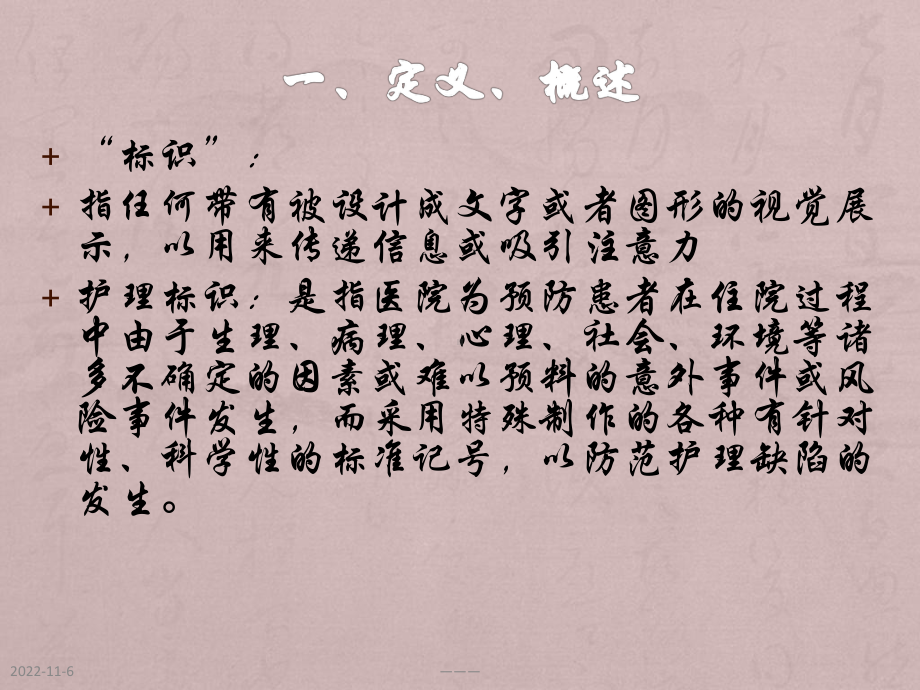 一、定义、概述
+ “标识”：
+ 指任何带有被设计成文字或者图形的视觉展
示，以用来传递信息或吸引注意力
+ 护理标识：是指医院为预防患者在住院过程
中由于生理、病理、心理、社会、环境等诸
多不确定的因素或难以预料的意外事件或风
险事件发生，而采用特殊制作的各种有针对
性、科学性的标准记号，以防范护理缺陷的
发生。
2022-11-6
———